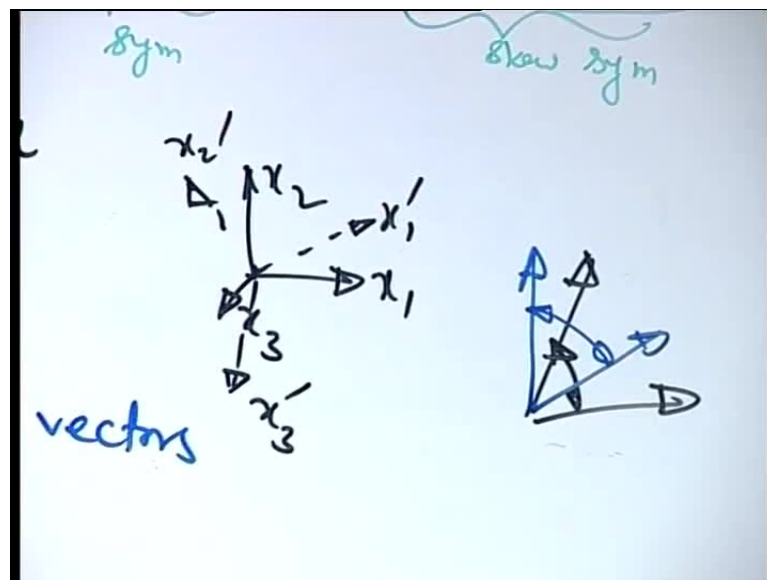 sym
skew sym
x₂′
x₂
x₁′
x₁
x₃
x₃′
vectors